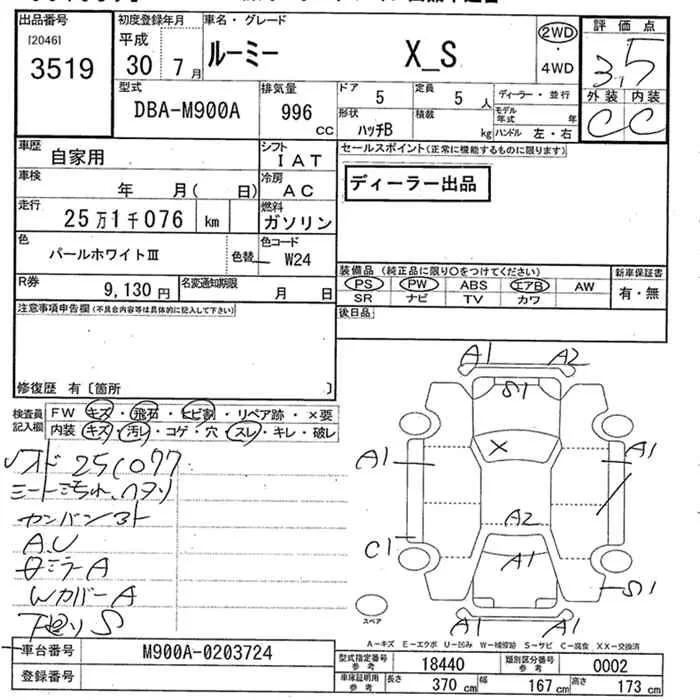 出品番号
[2046]
3519
初度登録年月
平成
30 7月
車名・グレード
ルーミー X_S
2WD
・
4WD
評価点
3.5
外装 内装
C C
型式
DBA-M900A
排気量
996
cc
ドア
5
定員
5 人
ディーラー・並行
形状
ハッチB
積載
kg
モデル年式 年
ハンドル 左・右
車歴
自家用
シフト
IAT
車検
年 月( 日)
冷房
AC
走行
25万1千076 km
燃料
ガソリン
色
パールホワイトⅢ
色替
色コード
W24
R券
9,130円
名変通知期限
月 日
セールスポイント(正常に機能するものに限ります)
ディーラー出品
装備品(純正品に限り○をつけてください)
新車保証書
PS PW ABS エアB AW
SR ナビ TV カワ
有・無
後日品
注意事項申告欄(不具合内容等は具体的に記入して下さい)
修復歴 有〔箇所 〕
検査員
記入欄
FW キズ・飛石・ヒビ割・リペア跡・×要
内装 キズ・汚レ・コゲ・穴・スレ・キレ・破レ
251077
カンバンアト
A.U
ミラーA
WカバーA
下廻りS
A1 A2
S1
X
A1
A1
A2
A1
C1
S1
A1 A1
スペア
A-キズ E-エクボ U-凹み W-補修跡 S-サビ C-腐食 XX-交換済
車台番号
M900A-0203724
登録番号
型式指定番号
参考
18440
類別区分番号
参考
0002
車庫証明用
参考
長さ 370 cm
幅 167 cm
高さ 173 cm